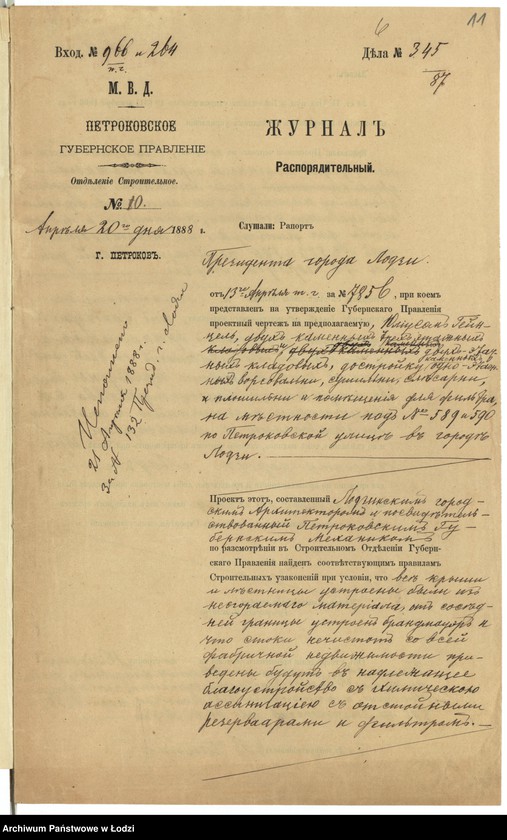 6
11
Вход. № 966 и 264
т.г.
Дѣла № 345
87
М. В. Д.
ПЕТРОКОВСКОЕ
ГУБЕРНСКОЕ ПРАВЛЕНІЕ
Отдѣленіе Строительное.
№ 10.
Апрѣля 20 дня 1888 г.
Г. ПЕТРОКОВЪ.
ЖУРНАЛЪ
Распорядительный.
Слушали: Рапортъ
Президента города Лодзи.
отъ 13го Апрѣля т. г. за № 7856, при коемъ
представленъ на утвержденіе Губернскаго Правленія
проектный чертежъ на предполагаемую, Юліусомъ Гейн-
целъ, двухъ каменныхъ
двухъ-этаж-
ныхъ кладовыхъ, достройку одно-этаж-
каменныхъ
ныхъ ворсовальни, сушильни, слесарни,
и помѣщенія для фильтра,
на мѣстности подъ №№ 589 и 590
по Петроковской улицѣ въ городѣ
Лодзи.
Исполнено
21 Апрѣля 1888 г.
За № 132 През. г. Лодзи
Проектъ этотъ, составленный Лодзинскимъ город-
скимъ Архитекторомъ и посвидѣтель-
ствованный Петроковскимъ Гу-
бернскимъ Механикомъ
по разсмотрѣніи въ Строительномъ Отдѣленіи Губерн-
скаго Правленія найденъ соотвѣтствующимъ правиламъ
Строительныхъ узаконеній при условіи, что всѣ крыши
и лѣстницы устроены были изъ
несгораемаго матеріала, отъ сосѣд-
ней границы устроенъ брандмауеръ и
что стоки нечистотъ со всей
фабричной недвижимости при-
ведены будутъ въ надлежащее
благоустройство съ химическою
ассенизаціею съ отстойными
резервоарами и фильтромъ.
Archiwum Państwowe w Łodzi